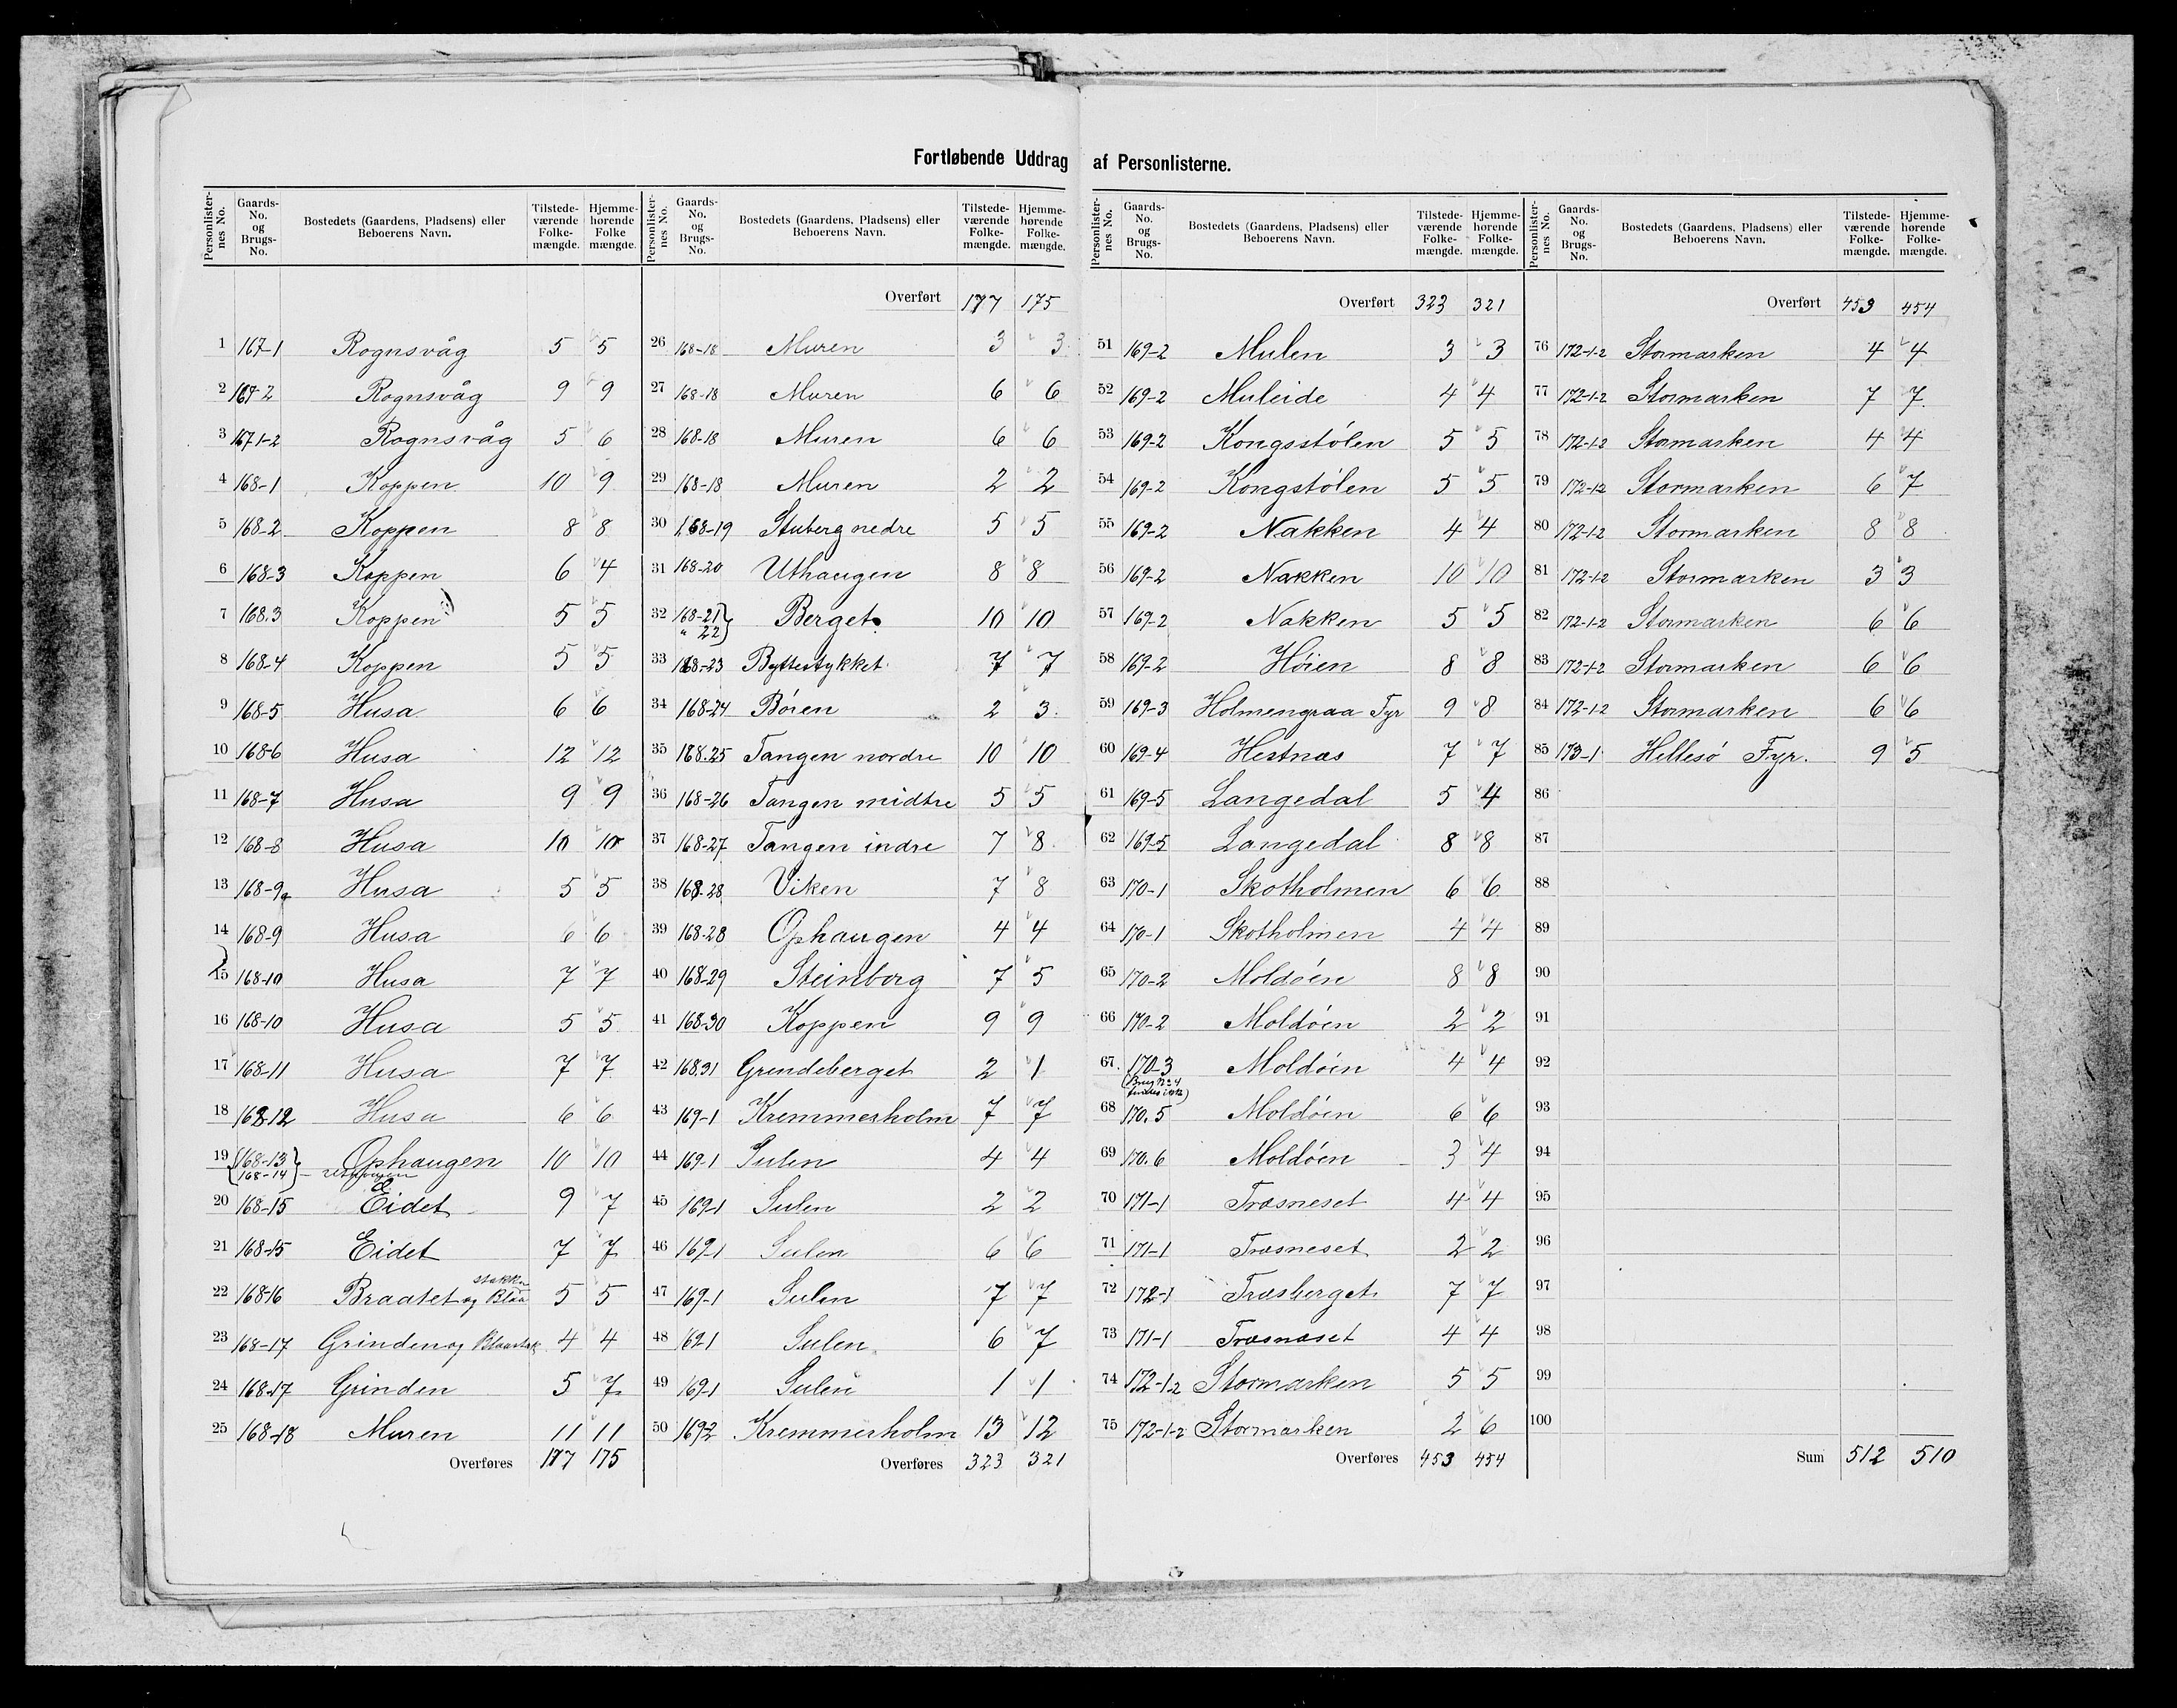 Fortløbende Uddrag af Personlisterne.
Personlister-nes No. | Gaards-No. og Brugs-No. | Bostedets (Gaardens, Pladsens) eller Beboerens Navn. | Tilstede-værende Folke-mængde. | Hjemme-hørende Folke mængde.
1 167-1 Rognsvåg 5 5
2 167-2 Rognsvåg 9 9
3 167 1-2 Rognsvåg 5 6
4 168-1 Koppen 10 9
5 168-2 Koppen 8 8
6 168-3 Koppen 6 4
7 168.3 Koppen 5 5
8 168-4 Koppen 5 5
9 168-5 Husa 6 6
10 168-6 Husa 12 12
11 168-7 Husa 9 9
12 168-8 Husa 10 10
13 168-9a Husa 5 5
14 168-9 Husa 6 6
15 168-10 Husa 7 7
16 168-10 Husa 5 5
17 168-11 Husa 7 7
18 168-12 Husa 6 6
19 168-13 Ophaugen 10 10
168-14
20 168-15 Eidet 9 7
21 168-15 Eidet 7 7
22 168-16 Braatet og Blaa stakken 5 5
23 168-17 Grinden og Blaastak 4 4
24 168-17 Grinden 5 7
25 168-18 Muren 11 11
Overføres 177 175
Personlister-nes No. | Gaards-No. og Brugs-No. | Bostedets (Gaardens, Pladsens) eller Beboerens Navn. | Tilstede-værende Folke-mængde. | Hjemme-hørende Folke-mængde.
Overført 177 175
26 168-18 Muren 3 3
27 168-18 Muren 6 6
28 168-18 Muren 6 6
29 168-18 Muren 2 2
30 168-19 Stuberg nedre 5 5
31 168-20 Uthaugen 8 8
32 168-21 Berget 10 10
" 22
33 168-23 Byttestykket 7 7
34 168-24 Børen 2 3
35 168.25 Tangen nordre 10 10
36 168-26 Tangen midtre 5 5
37 168-27 Tangen indre 7 8
38 168.28 Viken 7 8
39 168-28 Ophaugen 4 4
40 168-29 Steinborg 7 5
41 168.30 Koppen 9 9
42 168.31 Grindeberget 2 1
43 169-1 Kremmerholm 7 7
44 169-1 Sulen 4 4
45 169-1 Sulen 2 2
46 169-1 Sulen 6 6
47 169-1 Sulen 7 7
48 169-1 Sulen 6 7
49 169-1 Sulen 1 1
50 169-2 Kremmerholm 13 12
Overføres 323 321
Personlister-nes No. | Gaards-No. og Brugs-No. | Bostedets (Gaardens, Pladsens) eller Beboerens Navn. | Tilstede-værende Folke-mængde. | Hjemme-hørende Folke-mængde.
Overført 323 321
51 169-2 Mulen 3 3
52 169-2 Muleide 4 4
53 169-2 Kongsstølen 5 5
54 169-2 Kongstølen 5 5
55 169-2 Nakken 4 4
56 169-2 Nakken 10 10
57 169-2 Nakken 5 5
58 169-2 Høien 8 8
59 169-3 Holmengraa Fyr 9 8
60 169-4 Hestnæs 7 7
61 169-5 Langedal 5 4
62 169-5 Langedal 8 8
63 170-1 Skotholmen 6 6
64 170-1 Skotholmen 4 4
65 170-2 Moldøen 8 8
66 170-2 Moldøen 2 2
67. 170-3 Moldøen 4 4
(Brug No 4 findes ikke)
68 170.5 Moldøen 6 6
69 170.6 Moldøen 3 4
70 171-1 Træsneset 4 4
71 171-1 Træsneset 2 2
72 172-1 Træsberget 7 7
73 171-1 Træsnæset 4 4
74 172-1-2 Stormarken 5 5
75 172-1-2 Stormarken 2 6
Overføres 453 454
Personlister-nes No. | Gaards-No. og Brugs-No. | Bostedets (Gaardens, Pladsens) eller Beboerens Navn. | Tilstede-værende Folke-mængde. | Hjemme-hørende Folke-mængde.
Overført 453 454
76 172-1-2 Stormarken 4 4
77 172-1-2 Stormarken 7 7
78 172-1-2 Stormarken 4 4
79 172-1-2 Stormarken 6 7
80 172-1-2 Stormarken 8 8
81 172-1-2 Stormarken 3 3
82 172-1-2 Stormarken 6 6
83 172-1-2 Stormarken 6 6
84 172-1-2 Stormarken 6 6
85 173-1 Hellesø Fyr. 9 5
86
87
88
89
90
91
92
93
94
95
96
97
98
99
100
Sum 512 510